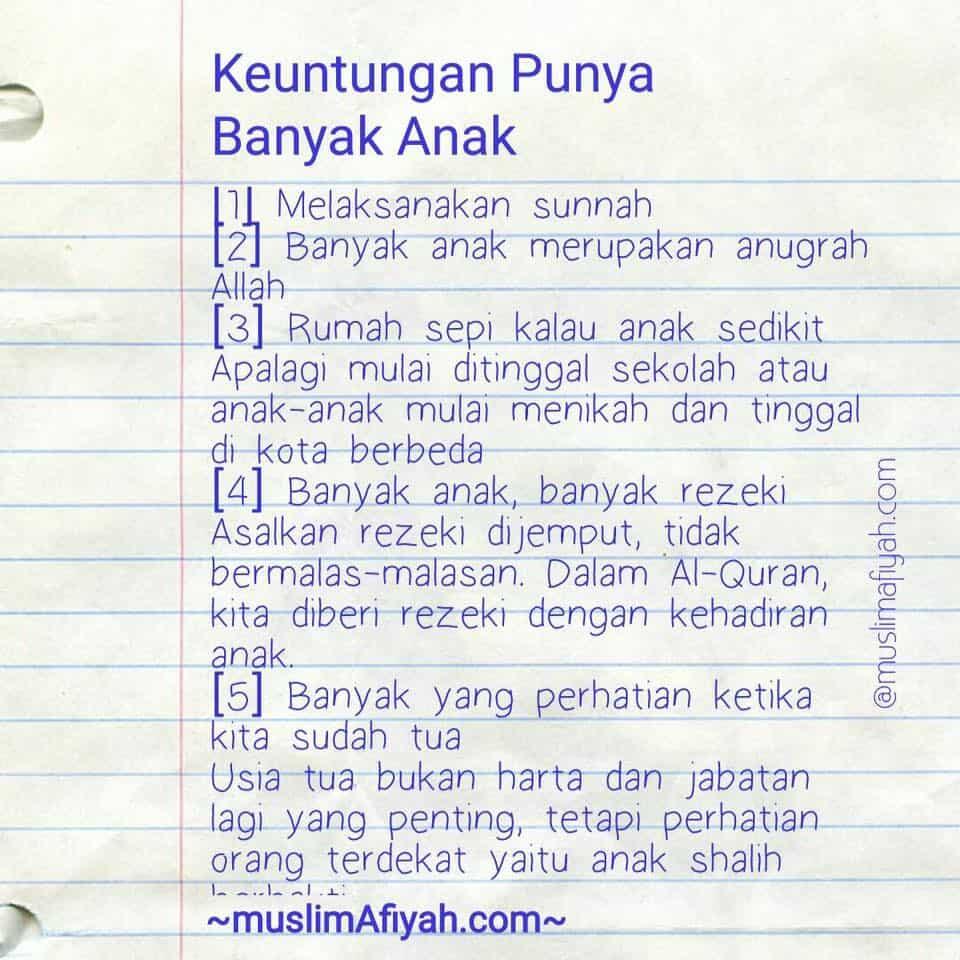 Keuntungan Punya
Banyak Anak
[1] Melaksanakan sunnah
[2] Banyak anak merupakan anugrah
Allah
[3] Rumah sepi kalau anak sedikit
Apalagi mulai ditinggal sekolah atau
anak-anak mulai menikah dan tinggal
di kota berbeda
[4] Banyak anak, banyak rezeki
Asalkan rezeki dijemput, tidak
bermalas-malasan. Dalam Al-Quran,
kita diberi rezeki dengan kehadiran
anak.
[5] Banyak yang perhatian ketika
kita sudah tua
Usia tua bukan harta dan jabatan
lagi yang penting, tetapi perhatian
orang terdekat yaitu anak shalih
~muslimAfiyah.com~
@muslimafiyah.com